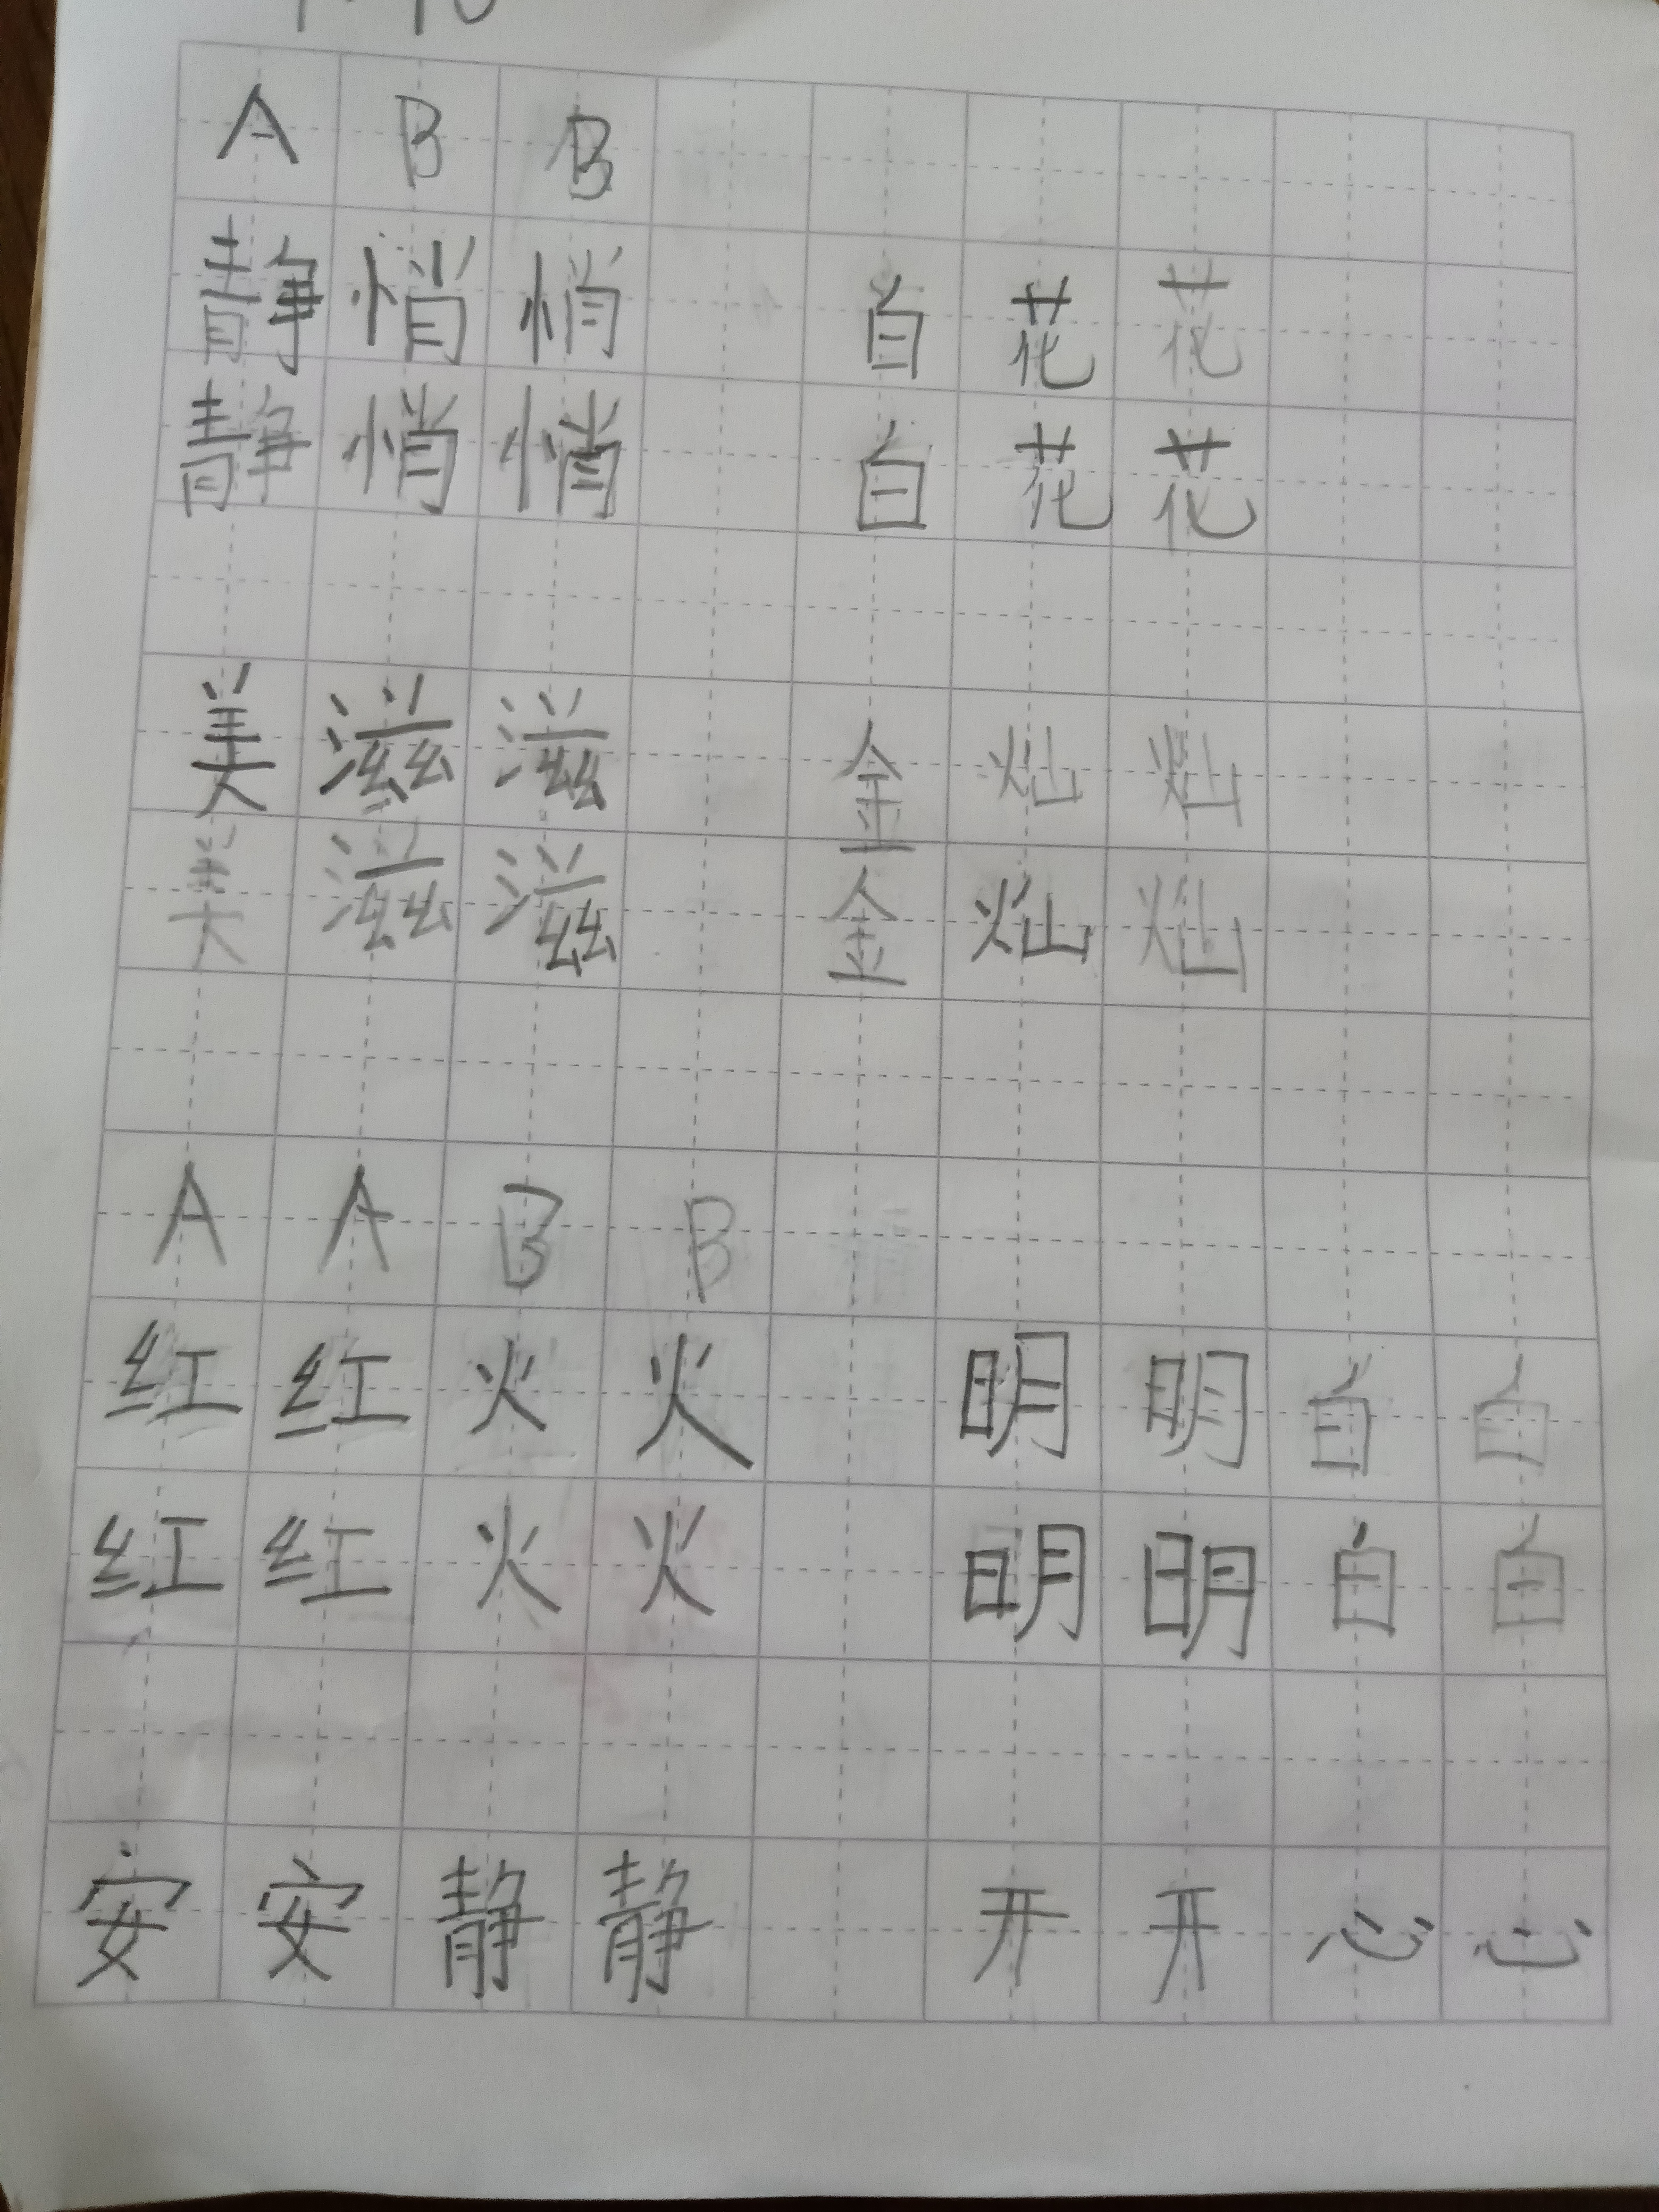 A B B
静 悄 悄 白 花 花
静 悄 悄 白 花 花
美 滋 滋 金 灿 灿
美 滋 滋 金 灿 灿
A A B B
红 红 火 火 明 明 白 白
红 红 火 火 明 明 白 白
安 安 静 静 开 开 心 心